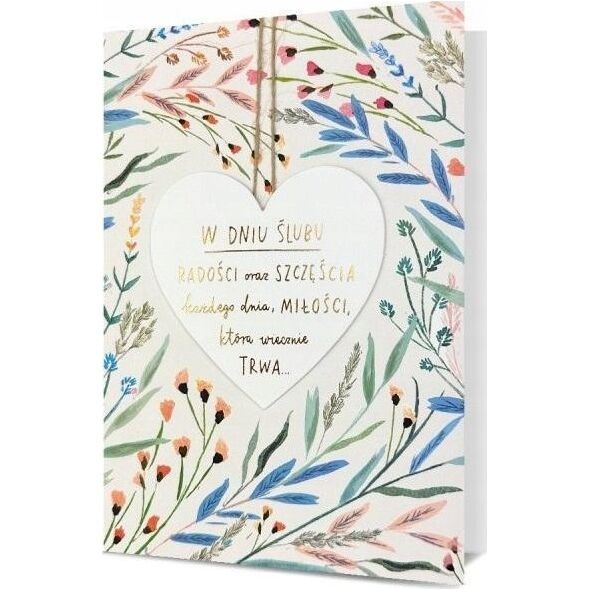 W DNIU ŚLUBU
RADOŚCI oraz SZCZĘŚCIA
każdego dnia, MIŁOŚCI,
która wiecznie
TRWA...